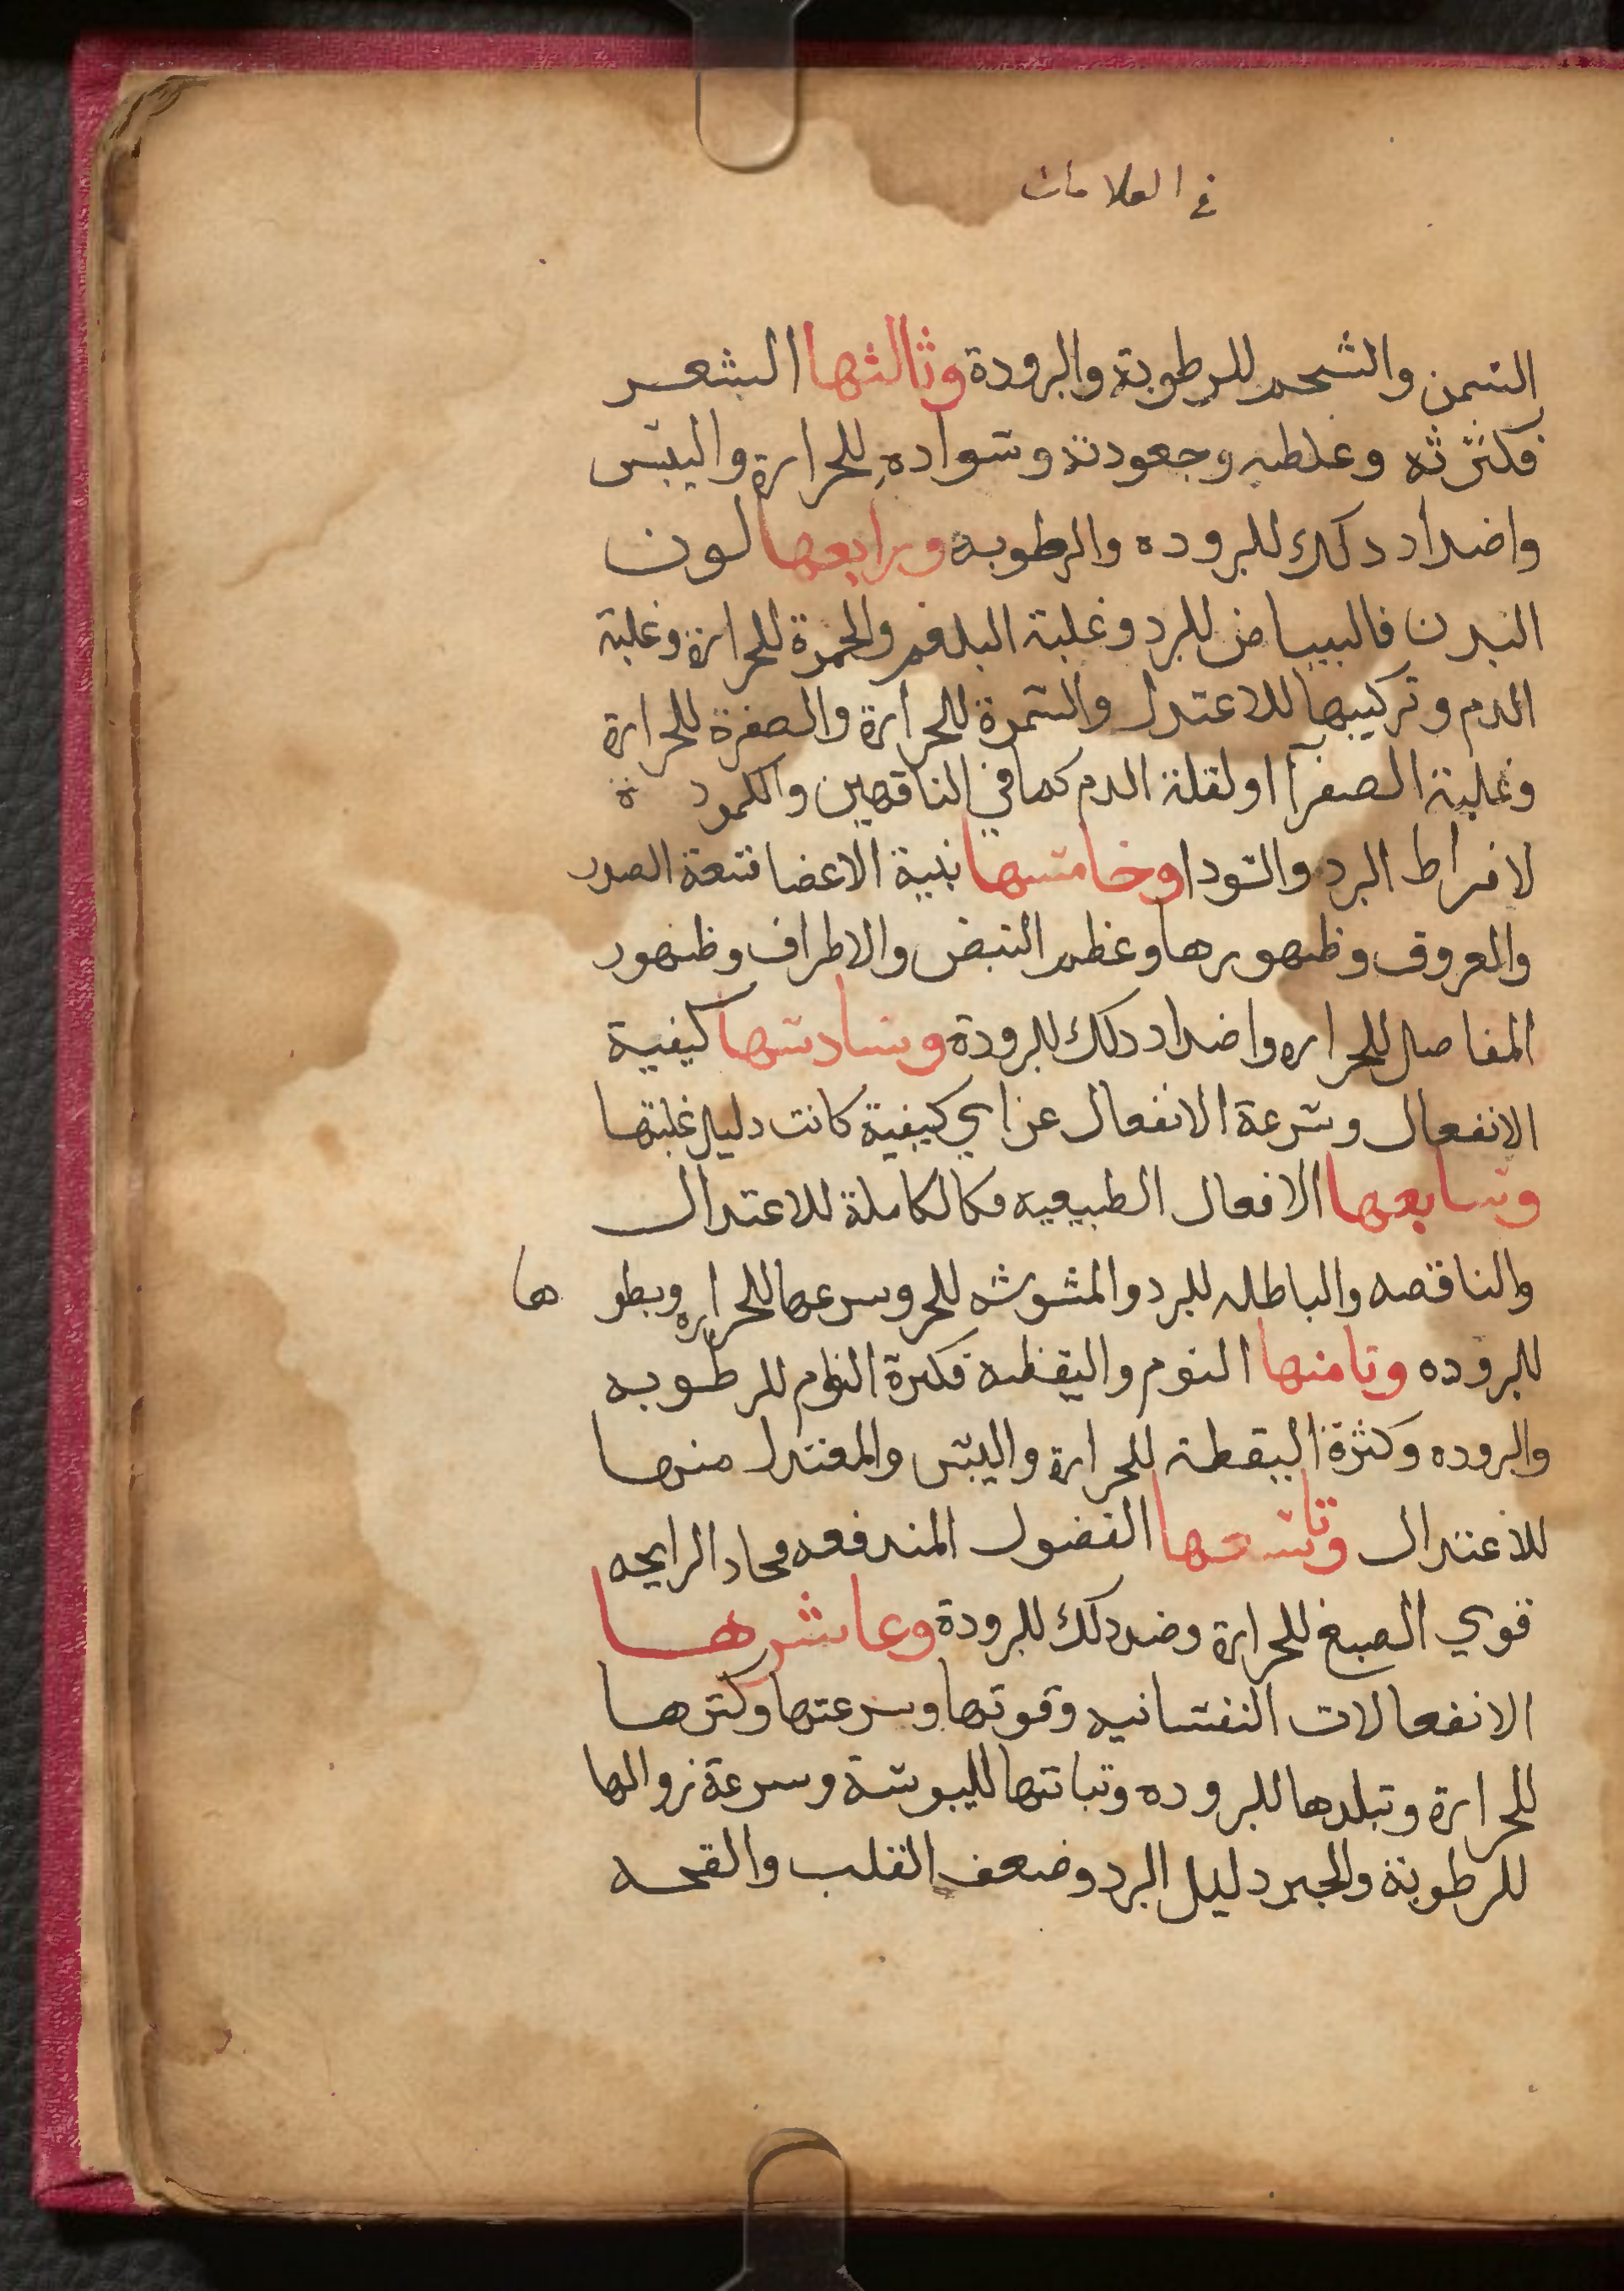 في العلامات
السمن والشحم للرطوبة والبرودة وثالثها الشعر
فكثرته وغلظه وجعودته وسواده للحرارة واليبس
واضداد ذلك للبروده والرطوبه ورابعها لون
البدن فالبياض للبرد وغلبة البلغم والحمرة للحرارة وغلبة
الدم وتركيبها للاعتدال والسمرة للحرارة والصفرة للحرارة
وغلبة الصفرآ او لقلة الدم كما في الناقهين والكمودة
لافراط البرد والسودا وخامسها بنية الاعضا فسعة الصدر
والعروق وظهورها وعظم النبض والاطراف وظهور
المفاصل للحراره واضداد ذلك للبرودة وسادسها كيفية
الانفعال وسرعة الانفعال عن اي كيفية كانت دليل غلبتها
وسابعها الافعال الطبيعيه فكالكاملة للاعتدال
والناقصه والباطله للبرد والمشوشه للحر وسرعها للحراره وبطوها
للبروده وثامنها النوم واليقظه فكثرة النوم للرطوبه
والبروده وكثرة اليقظة للحرارة واليبس والمعتدل منها
للاعتدال وتاسعها الفضول المندفعه فحاد الرايحه
قوي الصبغ للحرارة وضد ذلك للبرودة وعاشرها
الانفعالات النفسانيه وقوتها وسرعتها وكثرها
للحرارة وتبلدها للبروده وثباتها لليبوسة وسرعة زوالها
للرطوبة والجبن دليل البرد وضعف القلب والقحه